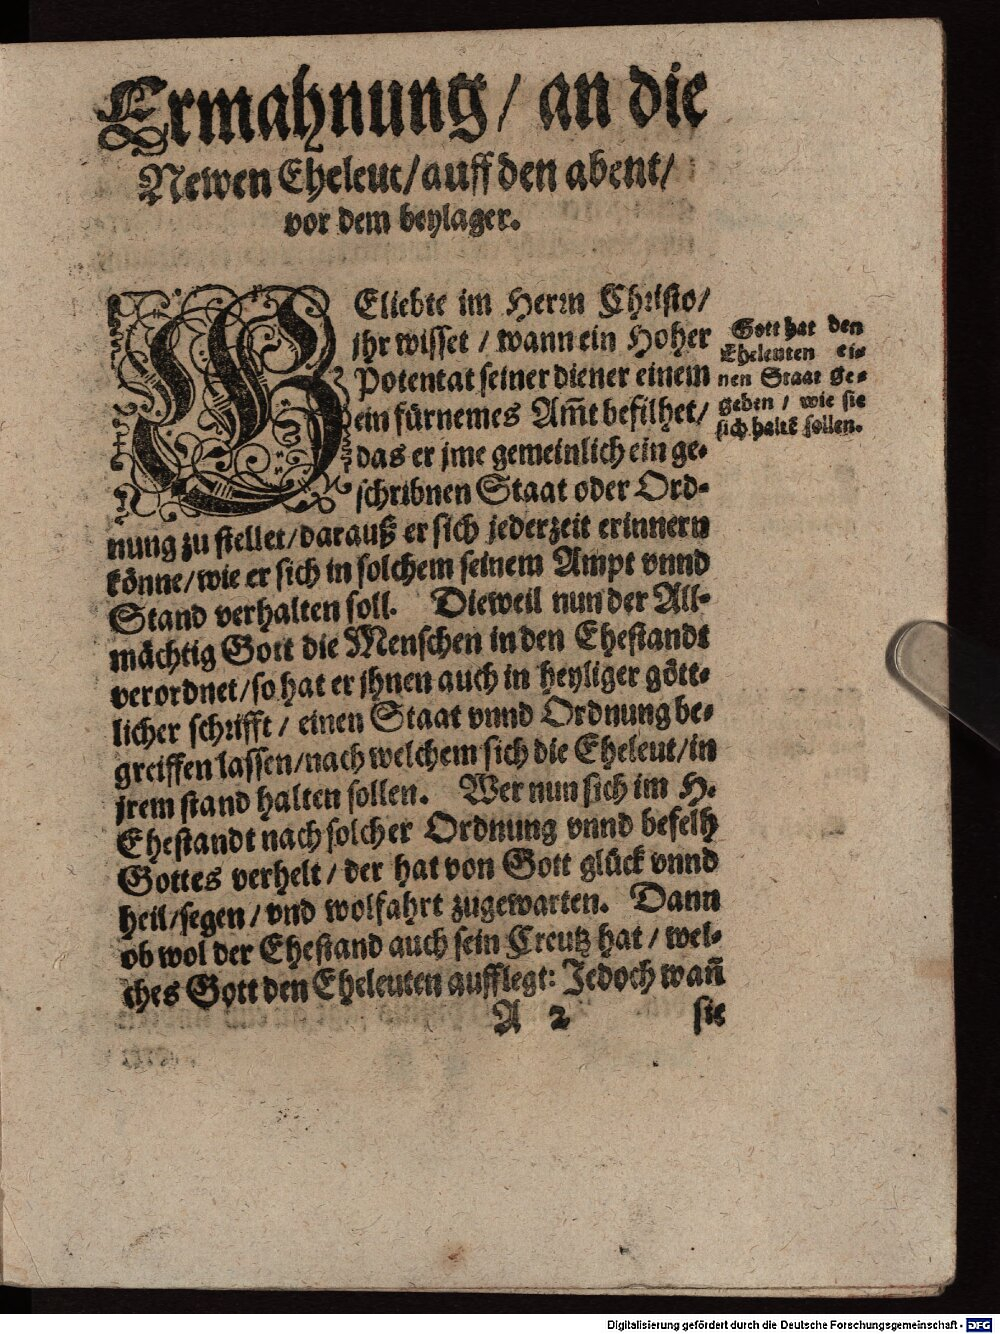 Ermahnung / an die
Newen Eheleut / auff den abent /
vor dem beylager.
GEliebte im Herrn Christo /
jhr wisset / wann ein Hoher
Potentat seiner diener einem
ein fürnemes Am̃t befilhet /
das er jme gemeinlich ein ge-
schribnen Staat oder Ord-
nung zu stellet / darauß er sich jederzeit erinnern
könne / wie er sich in solchem seinem Ampt vnnd
Stand verhalten soll. Dieweil nun der All-
mächtig Gott die Menschen in den Ehestandt
verordnet / so hat er jhnen auch in heyliger gött-
licher schrifft / einen Staat vnnd Ordnung be-
greiffen lassen / nach welchem sich die Eheleut / in
jrem stand halten sollen. Wer nun sich im H.
Ehestandt nach solcher Ordnung vnnd befelh
Gottes verhelt / der hat von Gott glück vnnd
heil / segen / vnd wolfahrt zugewarten. Dann
ob wol der Ehestand auch sein Creutz hat / wel-
ches Gott den Eheleuten aufflegt: Jedoch wañ
A 2 sie
Gott hat den
Eheleuten ei-
nen Staat ge-
geben / wie sie
sich haltẽ sollen.
Digitalisierung gefördert durch die Deutsche Forschungsgemeinschaft - DFG